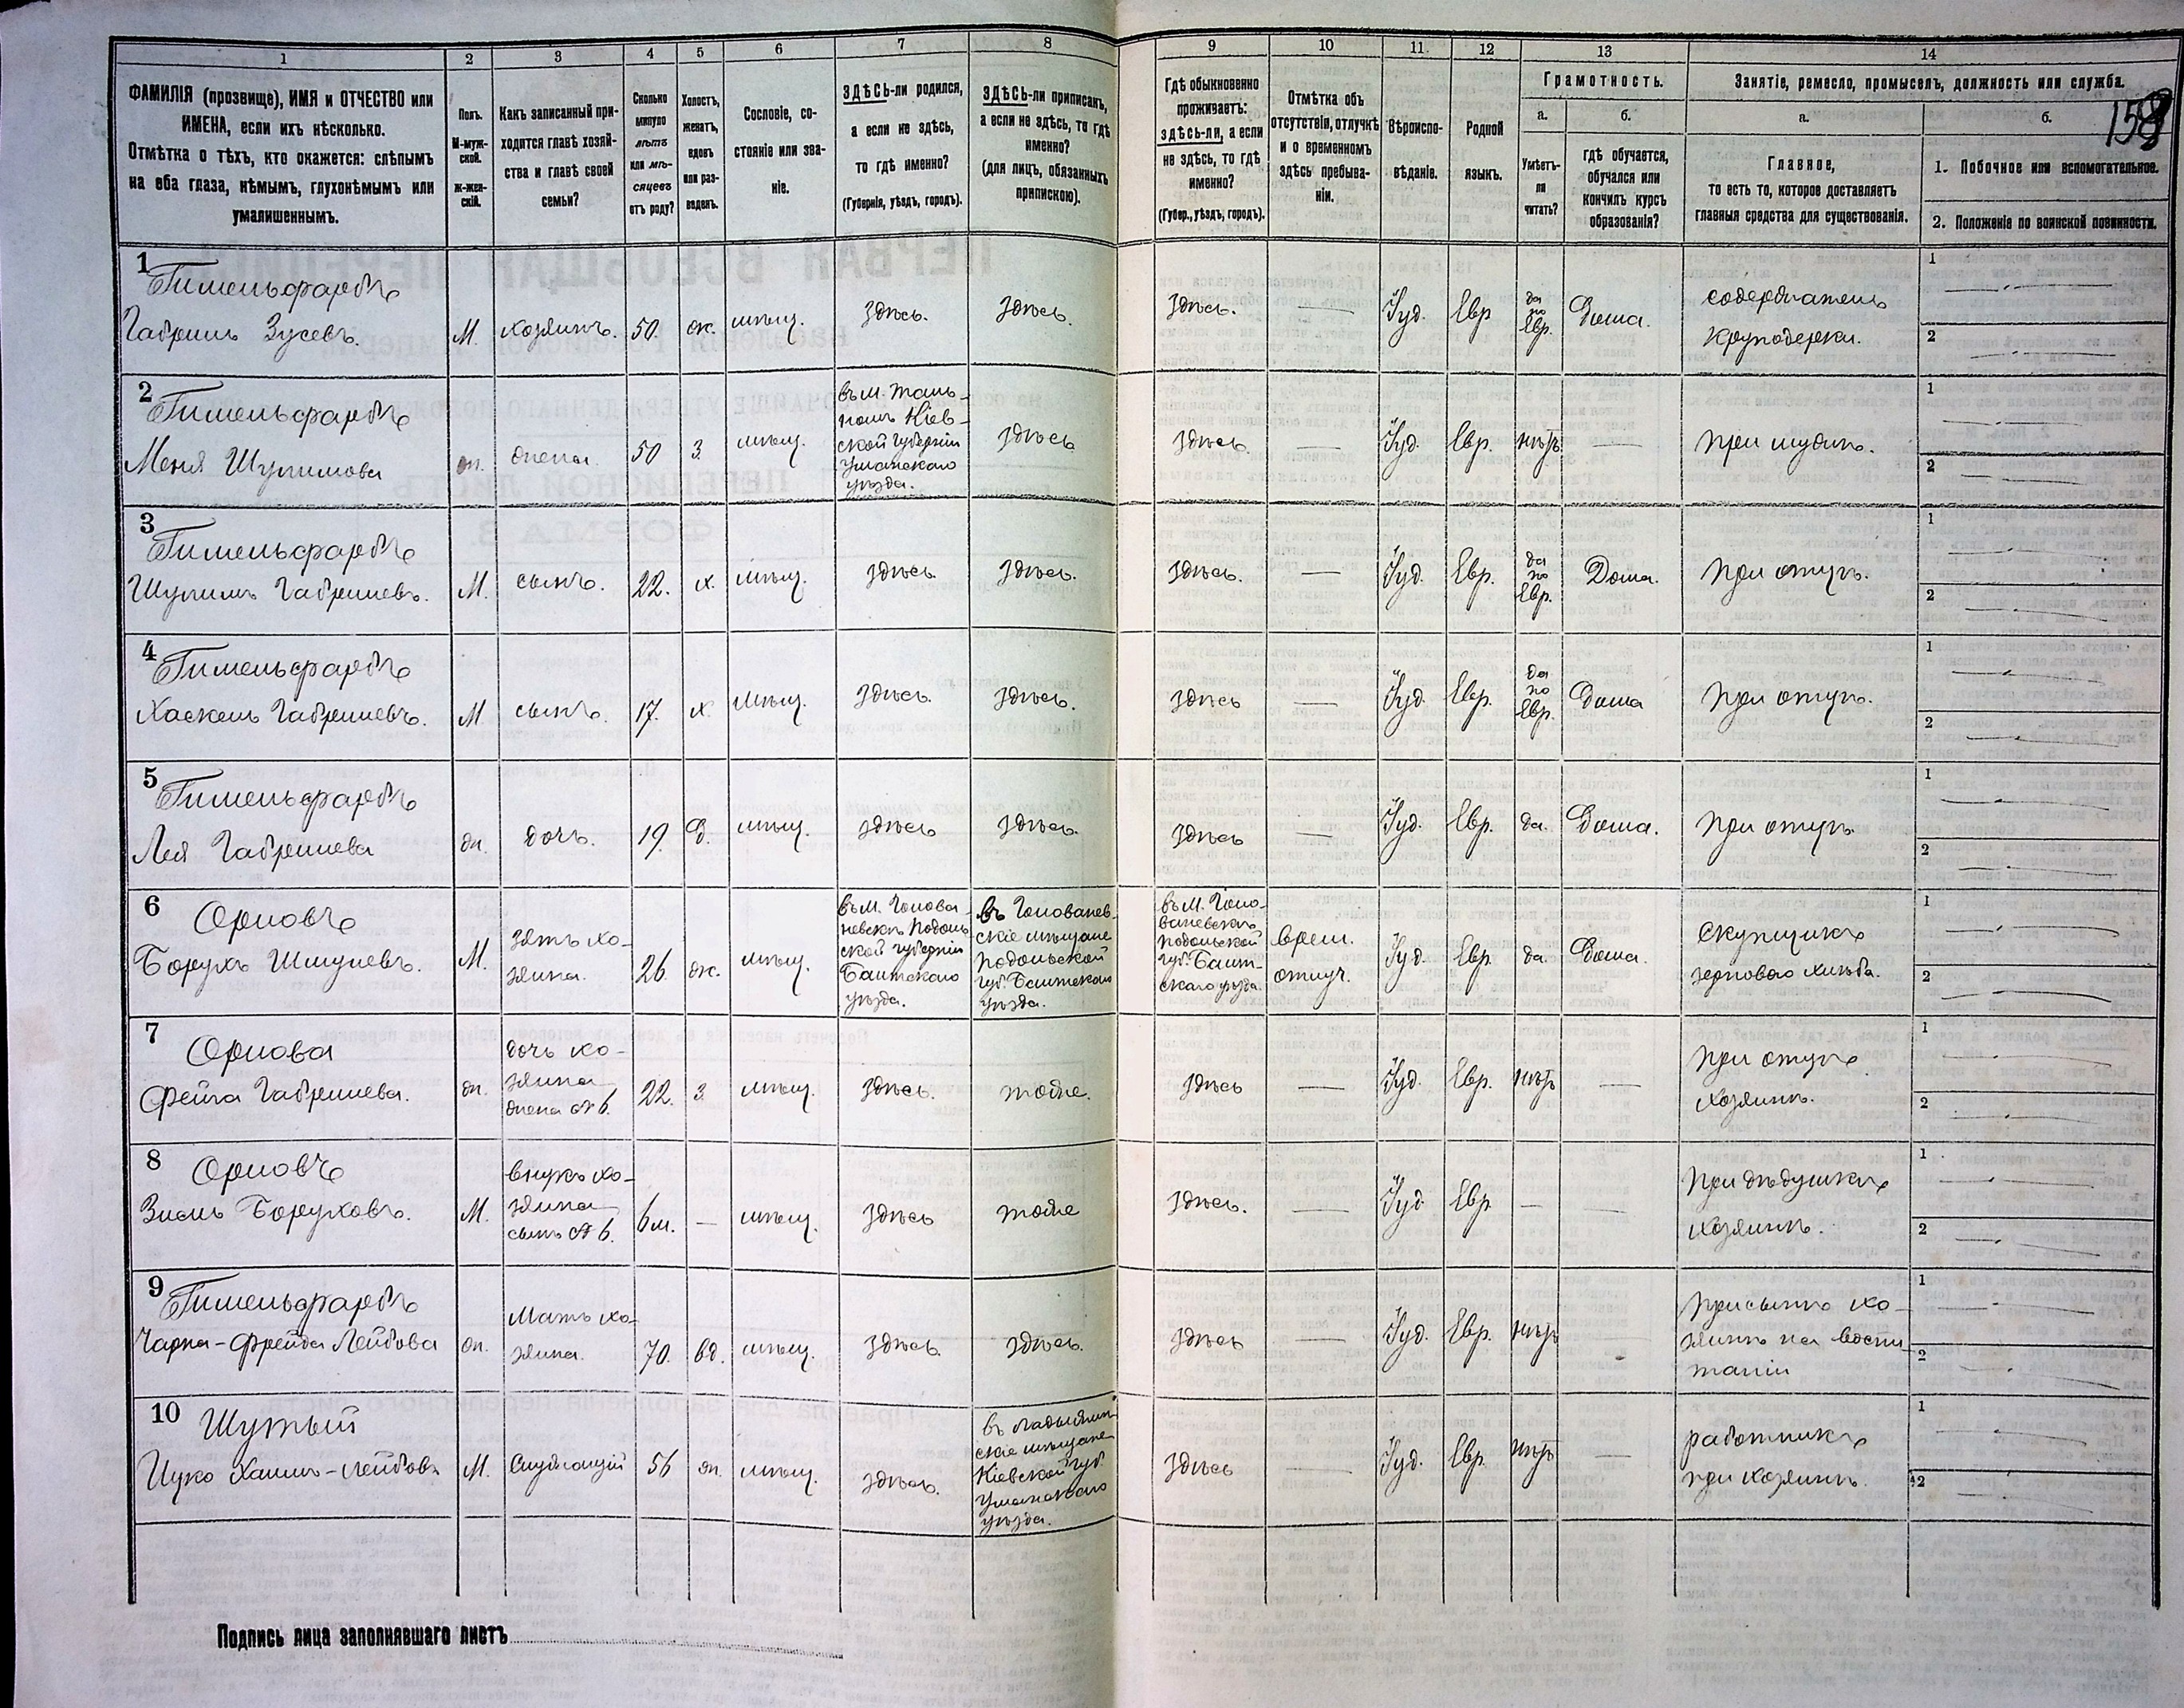 1 2 3 4 5 6 7 8 9 10 11. 12 13 14
ФАМИЛІЯ (прозвище), ИМЯ и ОТЧЕСТВО или
ИМЕНА, если ихъ нѣсколько.
Отмѣтка о тѣхъ, кто окажется: слѣпымъ
на оба глаза, нѣмымъ, глухонѣмымъ или
умалишеннымъ.
Полъ.
М-муж-
ской.
ж-жен-
скій.
Какъ записанный при-
ходится главѣ хозяй-
ства и главѣ своей
семьи?
Сколько
минуло
лѣтъ
или мѣ-
сяцевъ
отъ роду?
Холостъ,
женатъ,
вдовъ
или раз-
веденъ.
Сословіе, со-
стояніе или зва-
ніе.
ЗДѢСЬ-ли родился,
а если не здѣсь,
то гдѣ именно?
(Губернія, уѣздъ, городъ).
ЗДѢСЬ-ли приписанъ,
а если не здѣсь, то гдѣ
именно?
(для лицъ, обязанныхъ
припискою).
Гдѣ обыкновенно
проживаетъ:
здѣсь-ли, а если
не здѣсь, то гдѣ
именно?
(Губер., уѣздъ, городъ).
Отмѣтка объ
отсутствіи, отлучкѣ
и о временномъ
здѣсь пребыва-
ніи.
Вѣроиспо-
вѣданіе.
Родной
языкъ.
Грамотность.
а.
Умѣетъ-
ли
читать?
б.
гдѣ обучается,
обучался или
кончилъ курсъ
образованія?
Занятіе, ремесло, промыселъ, должность или служба.
а.
Главное,
то есть то, которое доставляетъ
главныя средства для существованія.
б.
158
1. Побочное или вспомогательное.
2. Положеніе по воинской повинности.
1
Гимельфарбъ
Габриль Зусевъ.
М.
хозяинъ.
50.
ж.
мѣщ.
Здѣсь.
Здѣсь.
Здѣсь.
—
Іуд.
Евр
да
по
Евр.
Дома.
содержатель
круподерки.
1 —
2 —
2
Гимельфарбъ
Меня Шулимова
ж.
жена.
50
з.
мѣщ.
въ м. Таль-
номъ Кіев-
ской губерніи
Уманскаго
уѣзда.
Здѣсь
Здѣсь.
Іуд.
Евр.
нѣтъ
—
при мужѣ.
1 —
2 —
3
Гимельфарбъ
Шулимъ Габрилевъ.
М.
сынъ.
22.
х.
мѣщ.
Здѣсь.
Здѣсь.
Здѣсь.
—
Іуд.
Евр.
да
по
Евр.
Дома.
при отцѣ.
1 —
2 —
4
Гимельфарбъ
Хаскель Габрилевъ.
М
сынъ.
17.
х.
мѣщ.
Здѣсь.
Здѣсь.
Здѣсь
—
Іуд.
Евр.
да
по
Евр.
Дома
при отцѣ.
1 —
2 —
5
Гимельфарбъ
Лея Габрилева
ж.
дочь.
19.
Д.
мѣщ.
Здѣсь
Здѣсь.
Здѣсь
—
Іуд.
Евр.
да.
Дома.
при отцѣ
1 —
2 —
6
Орловъ
Борухъ Шмулевъ.
М.
зять хо-
зяина.
26.
ж.
мѣщ.
въ м. Голова-
невскѣ Подоль-
ской губерніи
Балтскаго
уѣзда.
въ Голованев-
скіе мѣщане
Подольской
губ. Балтскаго
уѣзда.
въ м. Голо-
ваневскѣ
Подольской
губ. Балт-
скаго уѣзда.
врем.
отлуч.
Іуд.
Евр.
да.
Дома.
скупщикъ
зерноваго хлѣба.
1 —
2 —
7
Орлова
Фейга Габрилева.
ж.
дочь хо-
зяина
жена № 6.
22.
з.
мѣщ.
Здѣсь.
тоже.
Здѣсь
—
Іуд.
Евр.
нѣтъ
—
при отцѣ
хозяинѣ.
1 —
2 —
8
Орловъ
Зисль Боруховъ.
М.
внукъ хо-
зяина
сынъ № 6.
6 м.
—
мѣщ.
Здѣсь
тоже
Здѣсь.
—
Іуд
Евр
—
—
при дѣдушкѣ
хозяинѣ.
1 —
2 —
9
Гимельфарбъ
Чарна-Фрейда Лейбова
ж.
Мать хо-
зяина.
70.
вд.
мѣщ.
Здѣсь.
Здѣсь.
Здѣсь
—
Іуд.
Евр.
нѣтъ
при сынѣ хо-
зяинѣ на воспи-
таніи
1 —
2 —
10
Шутый
Ицко Хаимъ-Лейбовъ
М.
Служащій
56
ж.
мѣщ.
Здѣсь.
въ Ладыжин-
скіе мѣщане
Кіевской губ.
Уманскаго
уѣзда.
Здѣсь
—
Іуд.
Евр.
нѣтъ
—
работникъ
при хозяинѣ.
1 —
2 —
Подпись лица заполнявшаго листъ